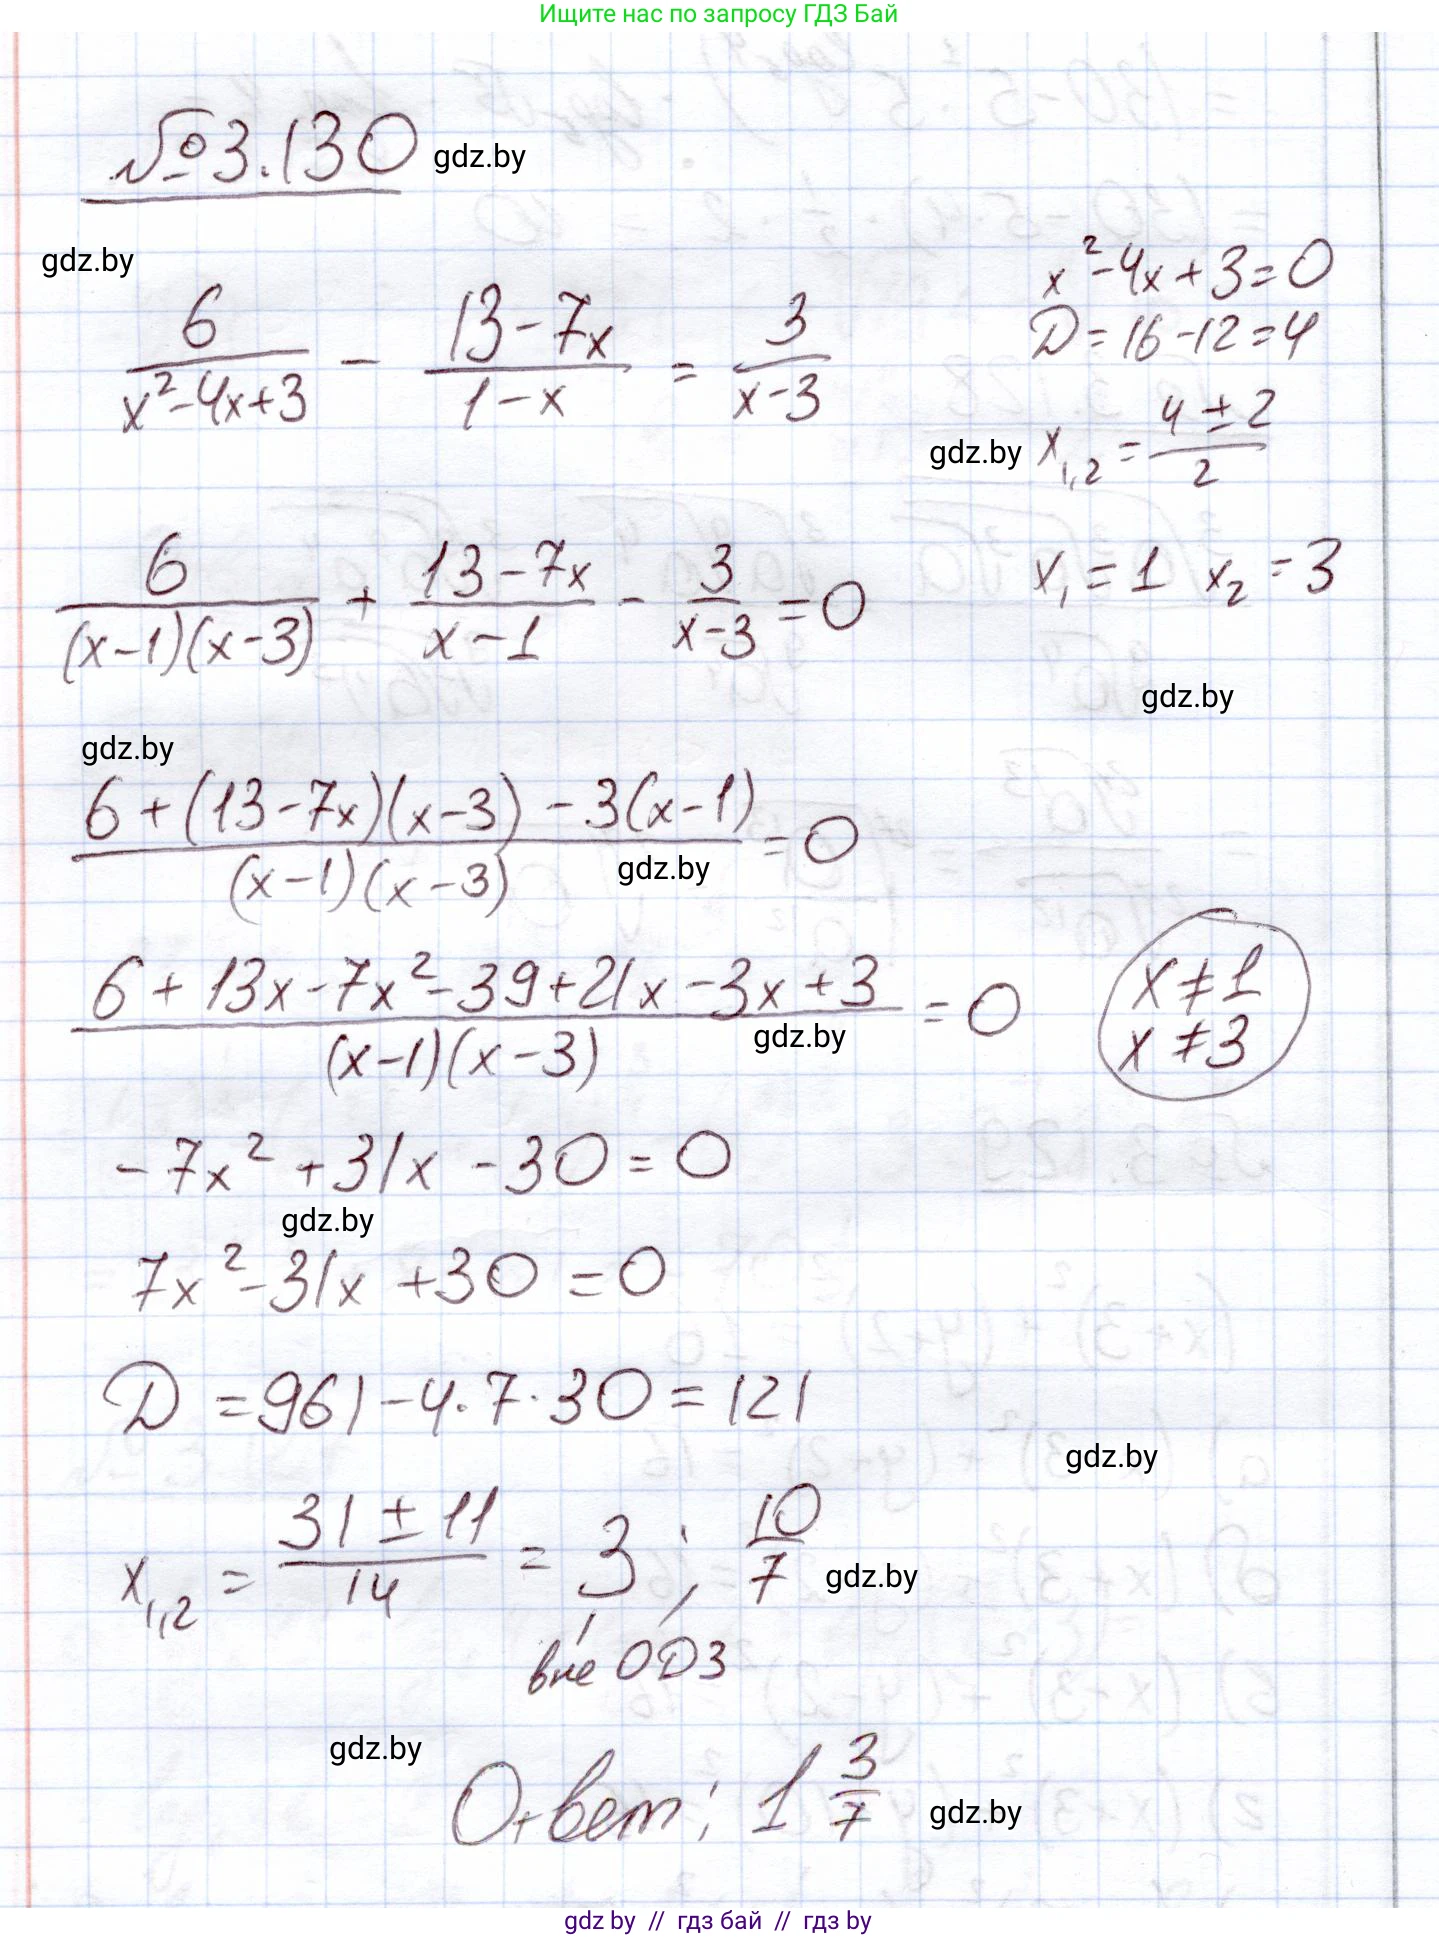 Ищите нас по запросу ГДЗ Бай
№3.130 gdz.by
gdz.by
6/(x²-4x+3) - (13-7x)/(1-x) = 3/(x-3)
x²-4x+3=0
D=16-12=4
gdz.by x₁,₂ = (4±2)/2
x₁=1 x₂=3
6/((x-1)(x-3)) + (13-7x)/(x-1) - 3/(x-3) =0
gdz.by
gdz.by
(6+(13-7x)(x-3)-3(x-1))/((x-1)(x-3)) =0
gdz.by
(6+13x-7x²-39+21x-3x+3)/((x-1)(x-3)) =0
gdz.by
x≠1
x≠3
-7x²+31x-30=0
gdz.by
7x²-31x+30=0
D=961-4·7·30=121
gdz.by
x₁,₂ = (31±11)/14 = 3; 10/7 gdz.by
вне ОДЗ
gdz.by
Ответ: 1 3/7 gdz.by
gdz by // гдз бай // гдз by